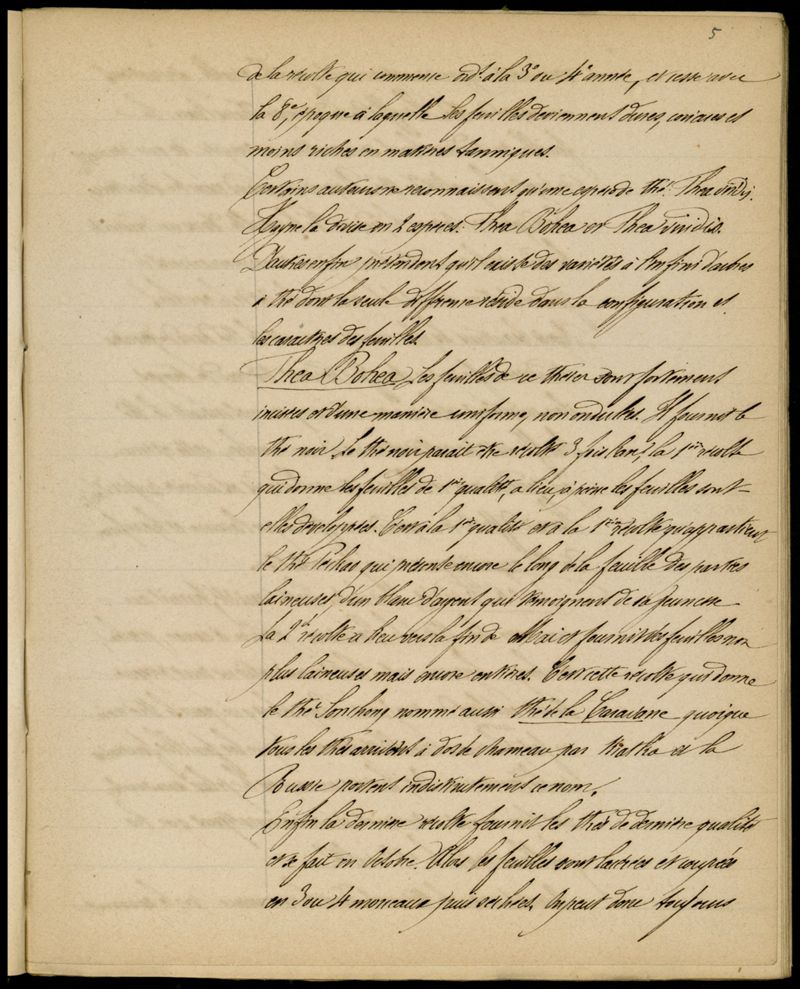 5
de la récolte qui commence ord.t à la 3e ou 4e année, et cesse avec
la 8e, époque à laquelle les feuilles deviennent dures, coriaces et
moins riches en matières tanniques.
Certains auteurs ne reconnaissent qu'une espèce de thé: Thea viridis.
Hayne la divise en 2 espèces: Thea Bohea et Thea viridis.
D'autres enfin prétendent qu'il existe des variétés à l'infini d'arbres
à thé dont la seule différence réside dans la configuration et
les caractères des feuilles.
Thea Bohea. Les feuilles de ce théier sont fortement
incisées et d'une manière uniforme, non ondulées. Il fournit le
thé noir. Le thé noir parait être récolté 3 fois l'an: la 1ère récolte
qui donne les feuilles de 1ère qualité, a lieu, à peine les feuilles sont-
elles développées. C'est à la 1ère qualité et à la 1ère récolte qu'appartient
le thé Peckao qui présente encore le long de la feuille des parties
laineuses d'un blanc d'argent qui témoignent de sa jeunesse
La 2de récolte a lieu vers la fin de Mai et fournit des feuilles non
plus laineuses mais encore entières. C'est cette récolte qui donne
le thé Souchong nommé aussi thé de la Caravane quoique
tous les thés arrivant à dos de chameau par Kiatka et la
Russie portent indistinctement ce nom.
Enfin la dernière récolte fournit les thés de dernière qualité
et se fait en Octobre. Alors les feuilles sont lacérées et coupées
en 3 ou 4 morceaux puis séchées. On peut donc toujours